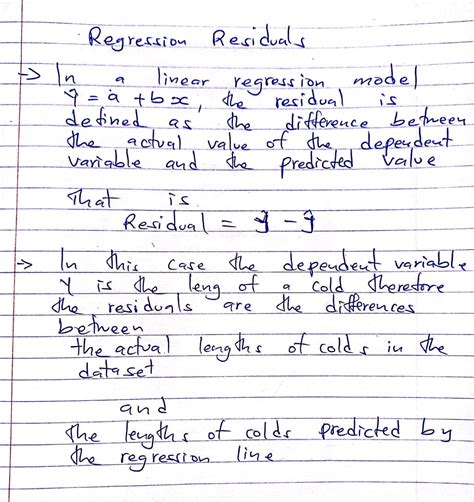 Regression Residuals
→ In a linear regression model
ŷ = a + bx, the residual is
defined as the difference between
the actual value of the dependent
variable and the predicted value
That is
Residual = y - ŷ
→ In this case the dependent variable
Y is the leng of a cold therefore
the residuals are the differences
between
the actual lengths of colds in the
dataset
and
the lengths of colds predicted by
the regression line